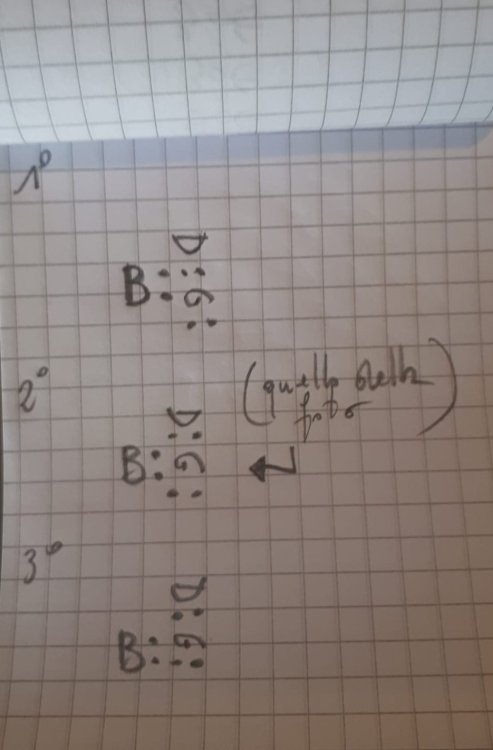 1°
D
B : : G :
2°
D
B : : G :
(quello della
foto)
3°
D
B : : G :